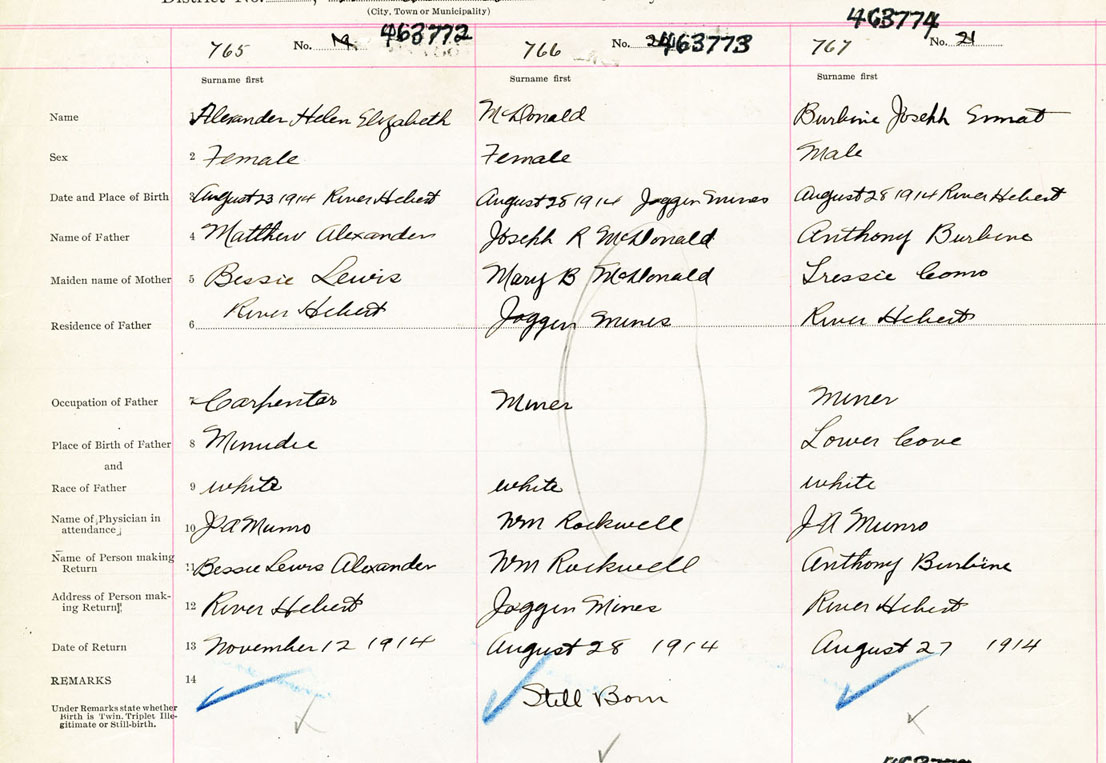 District No.
(City, Town or Municipality)
765 No. 463772
766 No. 463773
767 463774 No. 21
Surname first Surname first Surname first
Name 1 Alexander Helen Elizabeth McDonald Burbine Joseph
Sex 2 Female Female Male
Date and Place of Birth 3 August 23 1914 River Hebert August 28 1914 Joggin Mines August 28 1914 River Hebert
Name of Father 4 Matthew Alexander Joseph R McDonald Anthony Burbine
Maiden name of Mother 5 Bessie Lewis Mary B McDonald Tressie Como
Residence of Father 6 River Hebert Joggin Mines River Hebert
Occupation of Father 7 Carpenter Miner Miner
Place of Birth of Father 8 Minudie Lower Cove
and
Race of Father 9 white white white
Name of Physician in
attendance 10 J A Munro Wm Rockwell J A Munro
Name of Person making
Return 11 Bessie Lewis Alexander Wm Rockwell Anthony Burbine
Address of Person mak-
ing Return 12 River Hebert Joggin Mines River Hebert
Date of Return 13 November 12 1914 August 28 1914 August 27 1914
REMARKS 14 Still Born
Under Remarks state whether
Birth is Twin, Triplet Ille-
gitimate or Still-birth.